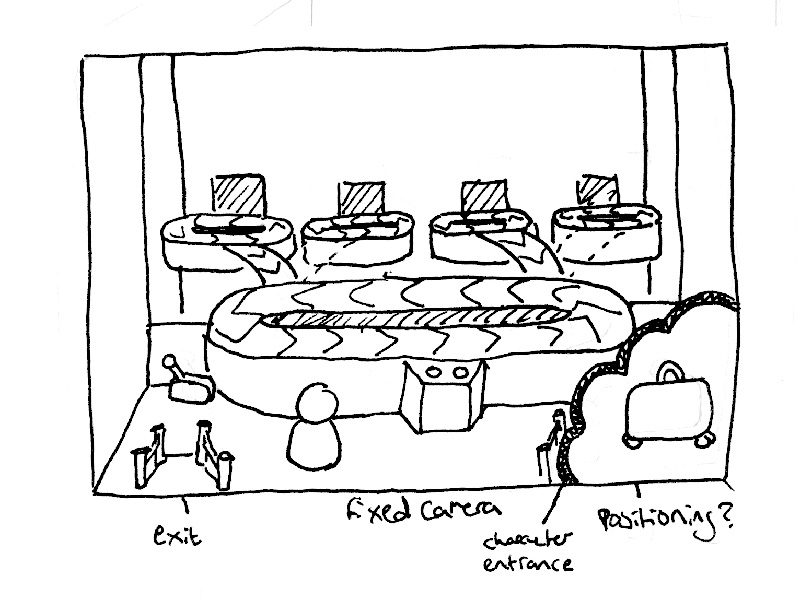 exit
fixed camera
character
entrance
Positioning?